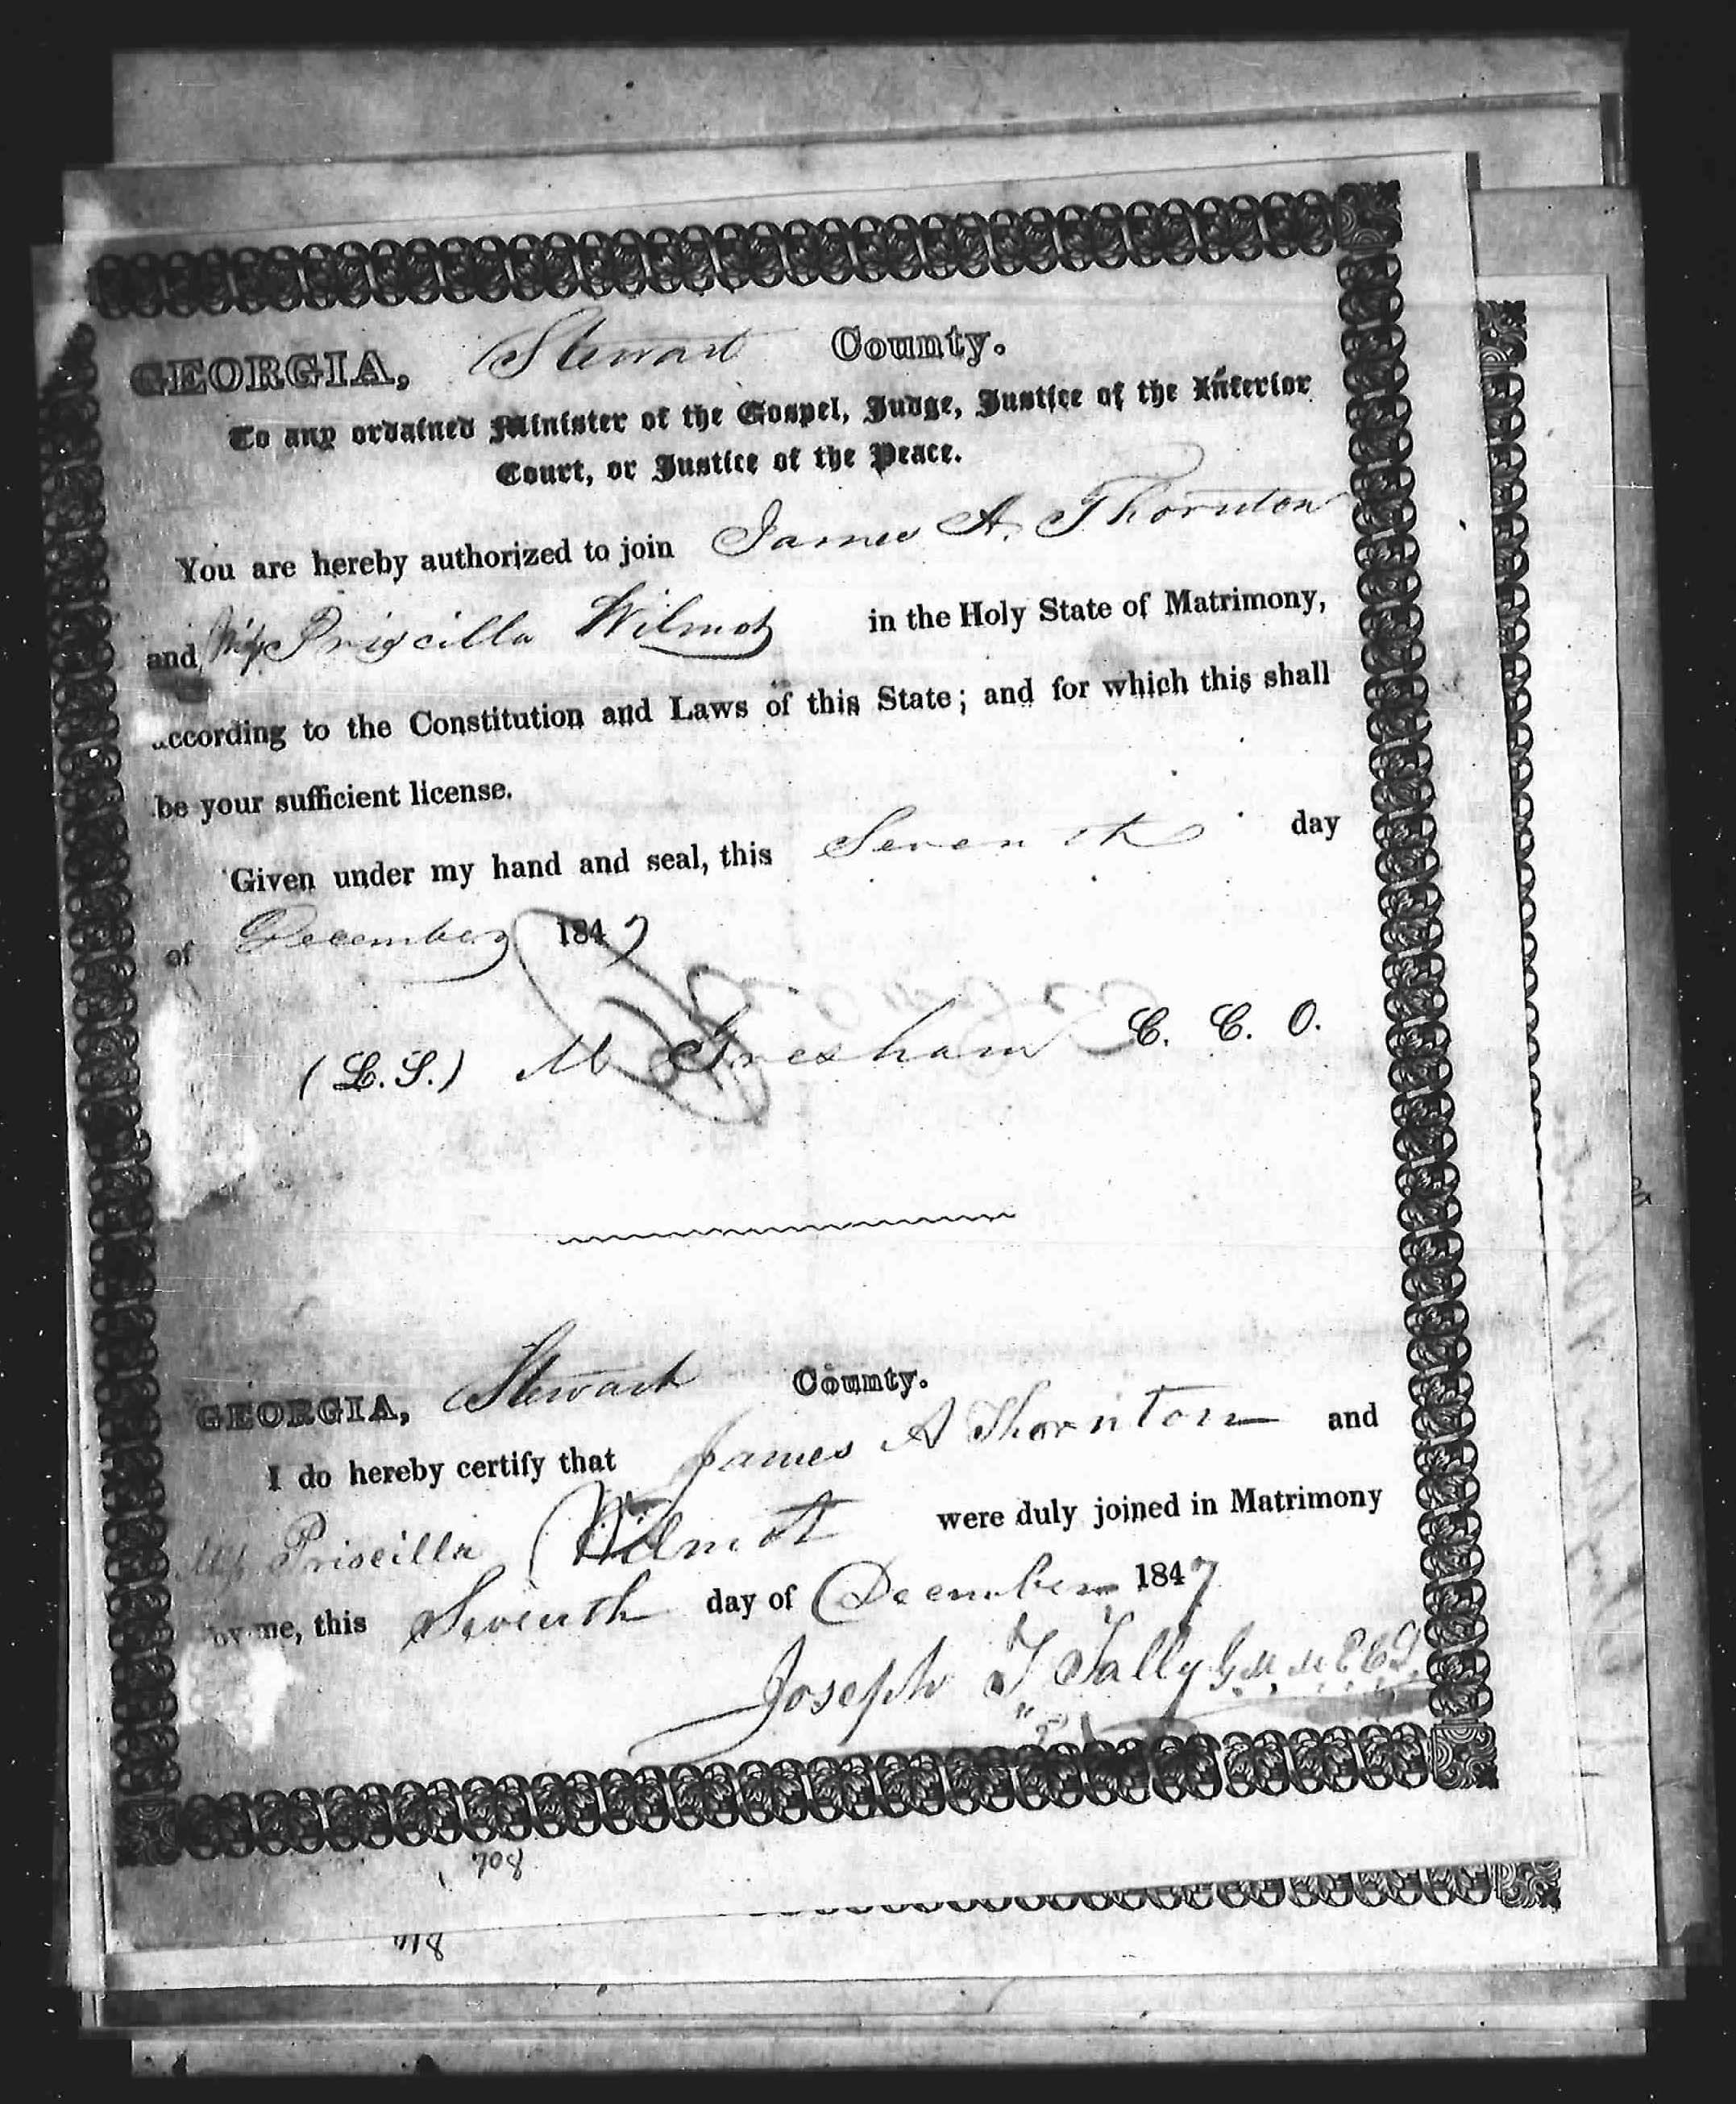 GEORGIA, Stewart County.
To any ordained Minister of the Gospel, Judge, Justice of the Inferior
Court, or Justice of the Peace.
You are hereby authorized to join James A. Thornton
and Miss Priscilla Wilmot in the Holy State of Matrimony,
according to the Constitution and Laws of this State; and for which this shall
be your sufficient license.
Given under my hand and seal, this Seventh day
of December 1847
(L. S.) M Gresham C. C. O.
GEORGIA, Stewart County.
I do hereby certify that James A Thornton and
Miss Priscilla Wilmot were duly joined in Matrimony
by me, this Seventh day of December 1847
Joseph T Tally